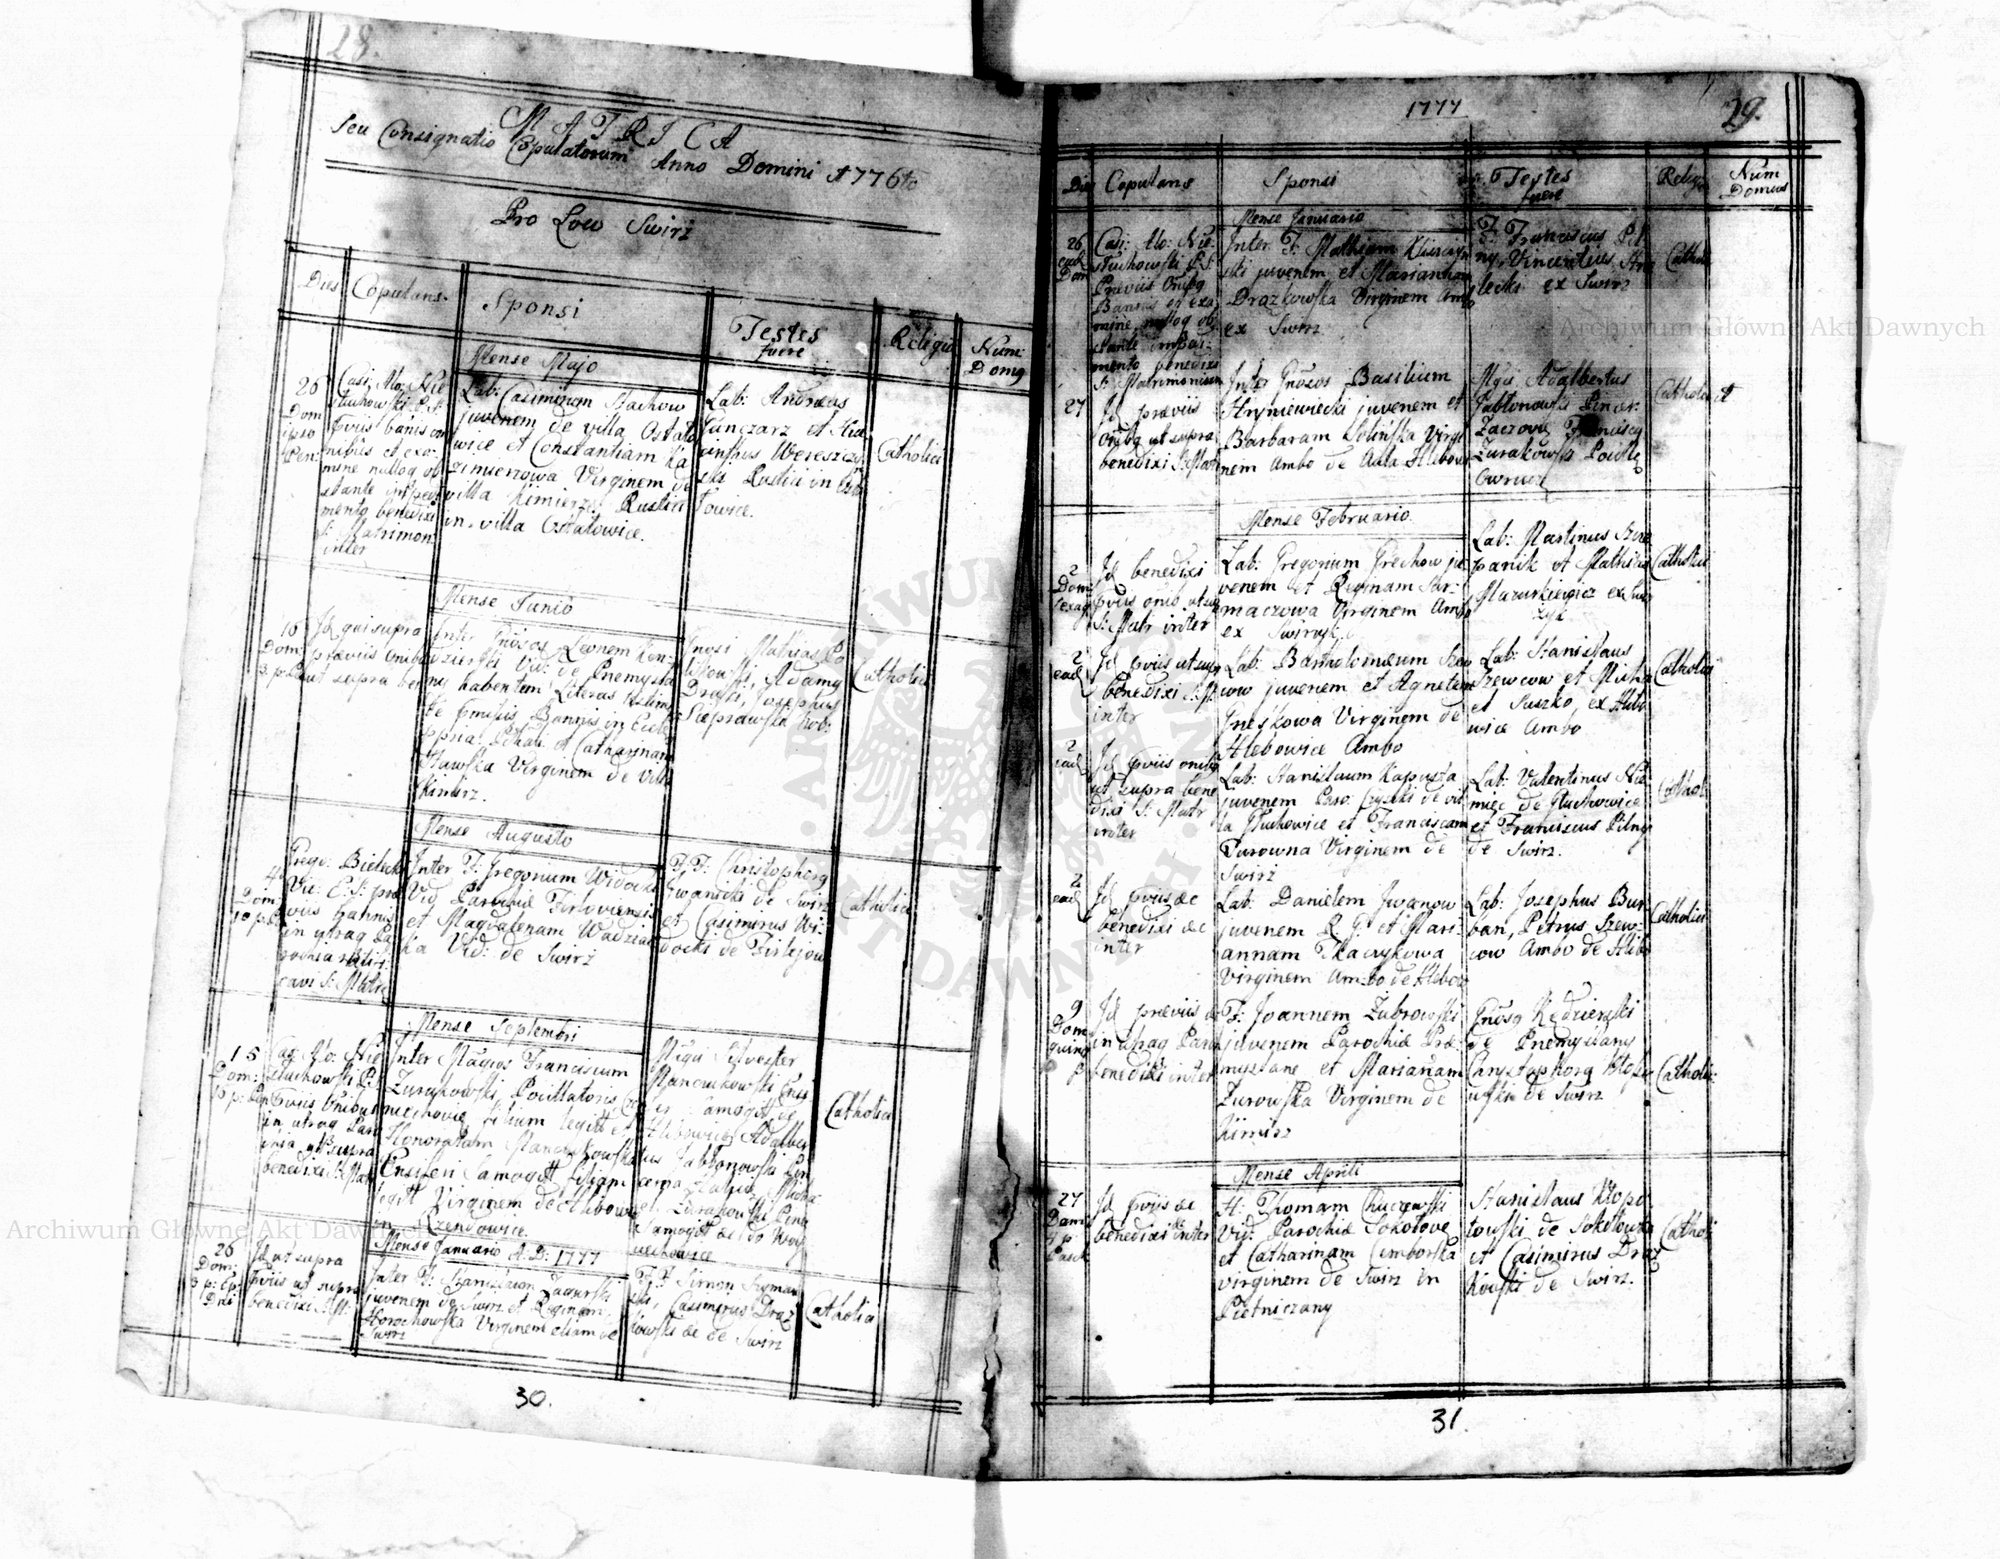 28.
MATRICA
Seu Consignatio Copulatorum Anno Domini 1776to
Pro Loco Swirz
Dies
Copulans
Sponsi
Testes
fuere
Religio
Num:
Domg
Mense Majo
26
Dom
ipso
Pen:
Casi: Alo: Nie
stuchowski P.S.
pviis banis om
nibus et exa:
mine nulloq ob
stante impedi
mento benedixi
S: Matrimon:
inter
Lab: Casimirum Stachow
juvenem de villa Ostalo
wice et Constantiam Ka
zimierzowa Virginem de
villa Kimierz Rustici
in villa Ostalowice.
Lab: Andreas
Ganczarz et Hia
cinthus Wereszczy
ski Rustici in Osta
lowice.
Catholici
Mense Junio
16
Dom:
3. p:
Id qui supra
præviis omibus
ut supra ben
Inter Gnosos Leonem Kon
dzierski Vid: de Pnemysla
ny habentem Literas testim
de pmissis Bannis in Eccle
et Catharinam
Stawska Virginem de Villa
Kimirz.
Gnosi Mathias Po
litowski, Adamg
Josephus
Catholici
Mense Augusto
4
Dom
10 p:
Grego: Bielecki
Vic: E.S: præ
viis bannis
in utraq Pa
rochia ratifi
cavi S: Matr
Inter F: Gregorium Widocki
Vid: Parochiæ Firloviensis
et Magdalenam Wadzia
ka Vid: de Swirz
F.F: Christophorg
Iwanicki de Swirz
et Casimirus Wi:
docki de Firlejow
Catholici
Mense Septembri
15
Dom:
Cas: Alo: Nie
stuchowski P.S.
pviis omibus
in utraq Paro
chia ut supra
benedixi S: Matr
Inter Magcos Franciscum
Zurakowski, Pocillatoris
filium legitt et
Honoratam Mancukowska
Ensiferi Samogitt filiam
legitt Virginem de Hlibowice
in Rzendowice.
Mgcus Silvester
Mancukowski Ensi
fer Samogitt de
Hlibowice Adalber
tus Jablonowski Pin
cerna
et Zurakowski
Samogitt de
Catholici
Mense Januario A.D: 1777
26
Dom:
3 p: Ep:
Dni
Id ut supra
pviis ut supra
benedixi S: M:
Inter F: Stanislaum Zagurski
juvenem de Swirz et Reginam
Horochowska Virginem etiam de
Swirz
F.F. Simon Szyman
ski, Casimirus Draz
kowski de de Swirz
Catholici
30.
1777
29.
Dies
Copulans
Sponsi
Testes
fuere
Religio
Num
Domus
Mense Januario
26
ead
Dom
Casi: Alo: Nie
stuchowski P.S.
Præviis omibg
Bannis et exa
mine nulloq ob
stante impedi
mento benedixi
S: Matrimonium
Inter F: Mathiam
ski juvenem et Mariannam
Drazkowska Virginem Ambo
ex Swirz
F: F: Franciscus Pil
ny, Vincentius
lecki ex Swirz
Catholi
27
Id præviis
omibg ut supra
benedixi S: Matr
Inter Gnosos Basilium
Hryniewiecki juvenem et
Barbaram Solińska Virgi
nem Ambo de Aula Hlebow
Mgci Adalbertus
Jablonowski Pincer:
Franciscg
Zurakowski
Catholici
Mense Februario
2
Dom
sexag
Id benedixi
pviis omib ut sup
S: Matr inter
Lab: Gregorium Grechow ju
venem et Reginam
maczowa Virginem Ambo
ex
Lab: Martinus Szcze
panik et Mathias
Mazurkiewicz ex Swir
Catholici
2
ead
Id pviis ut sup
benedixi S: M:
inter
Lab: Bartholomæum Szew
cow juvenem et Agnetem
Gneskowa Virginem de
Hlebowice Ambo
Lab: Stanislaus
Szewcow et Micha
el Suszko, ex Hlibo
wice Ambo
Catholici
2
ead
Id pviis omib
ut supra bene
dixi S: Matr
inter
Lab: Stanislaum Kapusta
juvenem Paro: de vil
la Hluchowice et Franciscam
Turowna Virginem de
Swirz
Lab: Valentinus Nie
miec de Hluchowice
et Franciscus Pilny
de Swirz.
Catholi
2
ead
Id pviis &c
benedixi &c
inter
Lab: Danielem Iwanow
juvenem R. G. et Mari
annam Tkaczykowa
Virginem Ambo de Hlebow
Lab: Josephus Bur
ban, Petrus Szew:
cow Ambo de Hlibo
Catholici
9
Dom
quinq
Id præviis &c
in utraq Paro
benedixi inter
F: Joannem Zubrowski
juvenem Parochiæ Præ:
myslane et Mariannam
Zurowska Virginem de
Kimirz
Gnosg Kędzierski
de Pnemyslany
Chrystophorg Klopo
towski de Swirz
Catholici
Mense Aprili
27
Dom
4 p
Pasch
Id pviis &c
benedixi inter
H: Thomam Chuczewski
Vid: Parochiæ Sokolowe
et Catharinam Cemborska
virginem de Swirz in
Pietniczany
Stanislaus Klopo
towski de Sokolowka
et Casimirus Draz
kowski de Swirz.
Catholi
31.
Archiwum Główne Akt Dawnych
Archiwum Główne Akt Dawnych